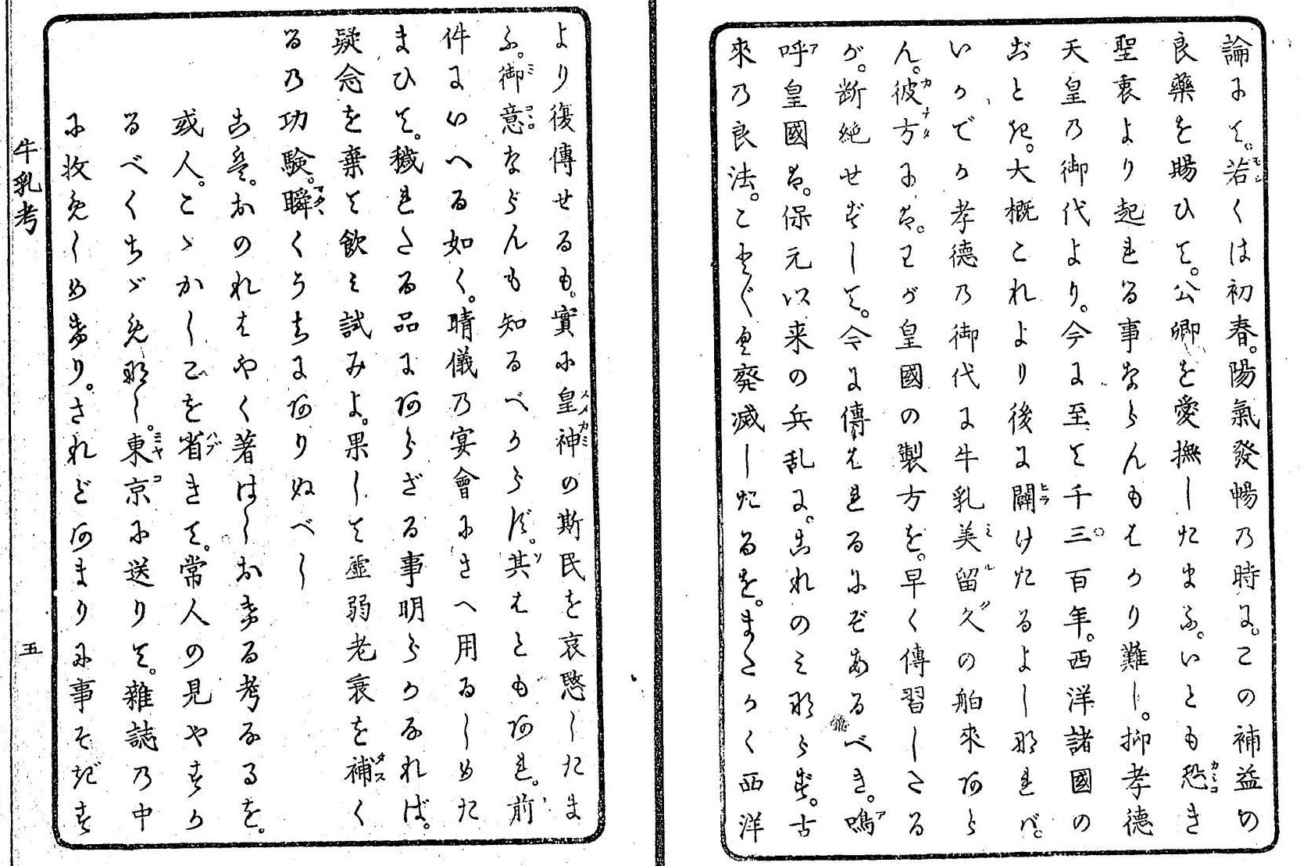 論に天。若くは初春。陽氣發暢乃時に。この補益の
良藥を賜ひて。公卿を愛撫したまふ。いとも恐き
聖衷より起れる事ならんもはかり難し。抑孝德
天皇乃御代より。今に至て千三百年。西洋諸國の
おとれ。大概これより後に闢けたるよし那れバ。
いかでか孝德乃御代に牛乳美留久の舶來あら
ん。彼方には。わが皇國の製方を。早く傳習したる
が。断絶せずして。今に傳はれるにぞあるべき。嗚
呼皇國は。保元以来の兵乱に。これのミ那らず。古
來乃良法。こと〴〵く廢滅したるを。またかく西洋
より復傳せるも。實に皇神の斯民を哀愍したま
ふ。御意ならんも知るべからず。其はともあれ。前
件にいへる如く。晴儀乃宴會にさへ用ゐしめた
まひて。穢れたる品にあらざる事明らかなれば。
疑念を棄て飲ミ試みよ。果して虚弱老衰を補く
る乃功驗。瞬くうちにありぬべし
こは。おのれはやく著はしおきる考なるを。
或人。こゝかしこを省きて。常人の見やすか
るべくちゞめ那し。東京に送りて。雜誌乃中
に收めしめきり。されどあまりに事そぎす
牛乳考
五